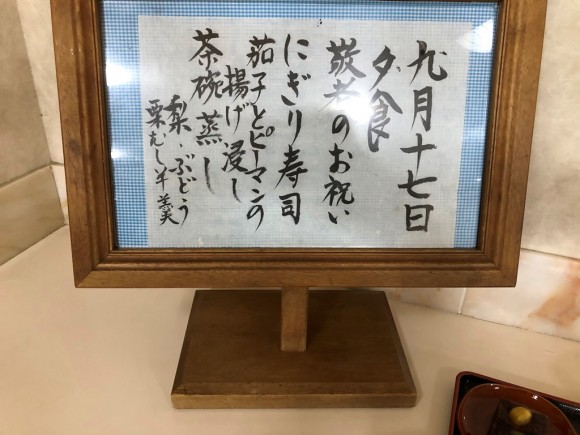 九月十七日
夕食
敬老のお祝い
にぎり寿司
茄子とピーマンの
揚げ浸し
茶碗蒸し
梨、ぶどう
栗むし羊羹